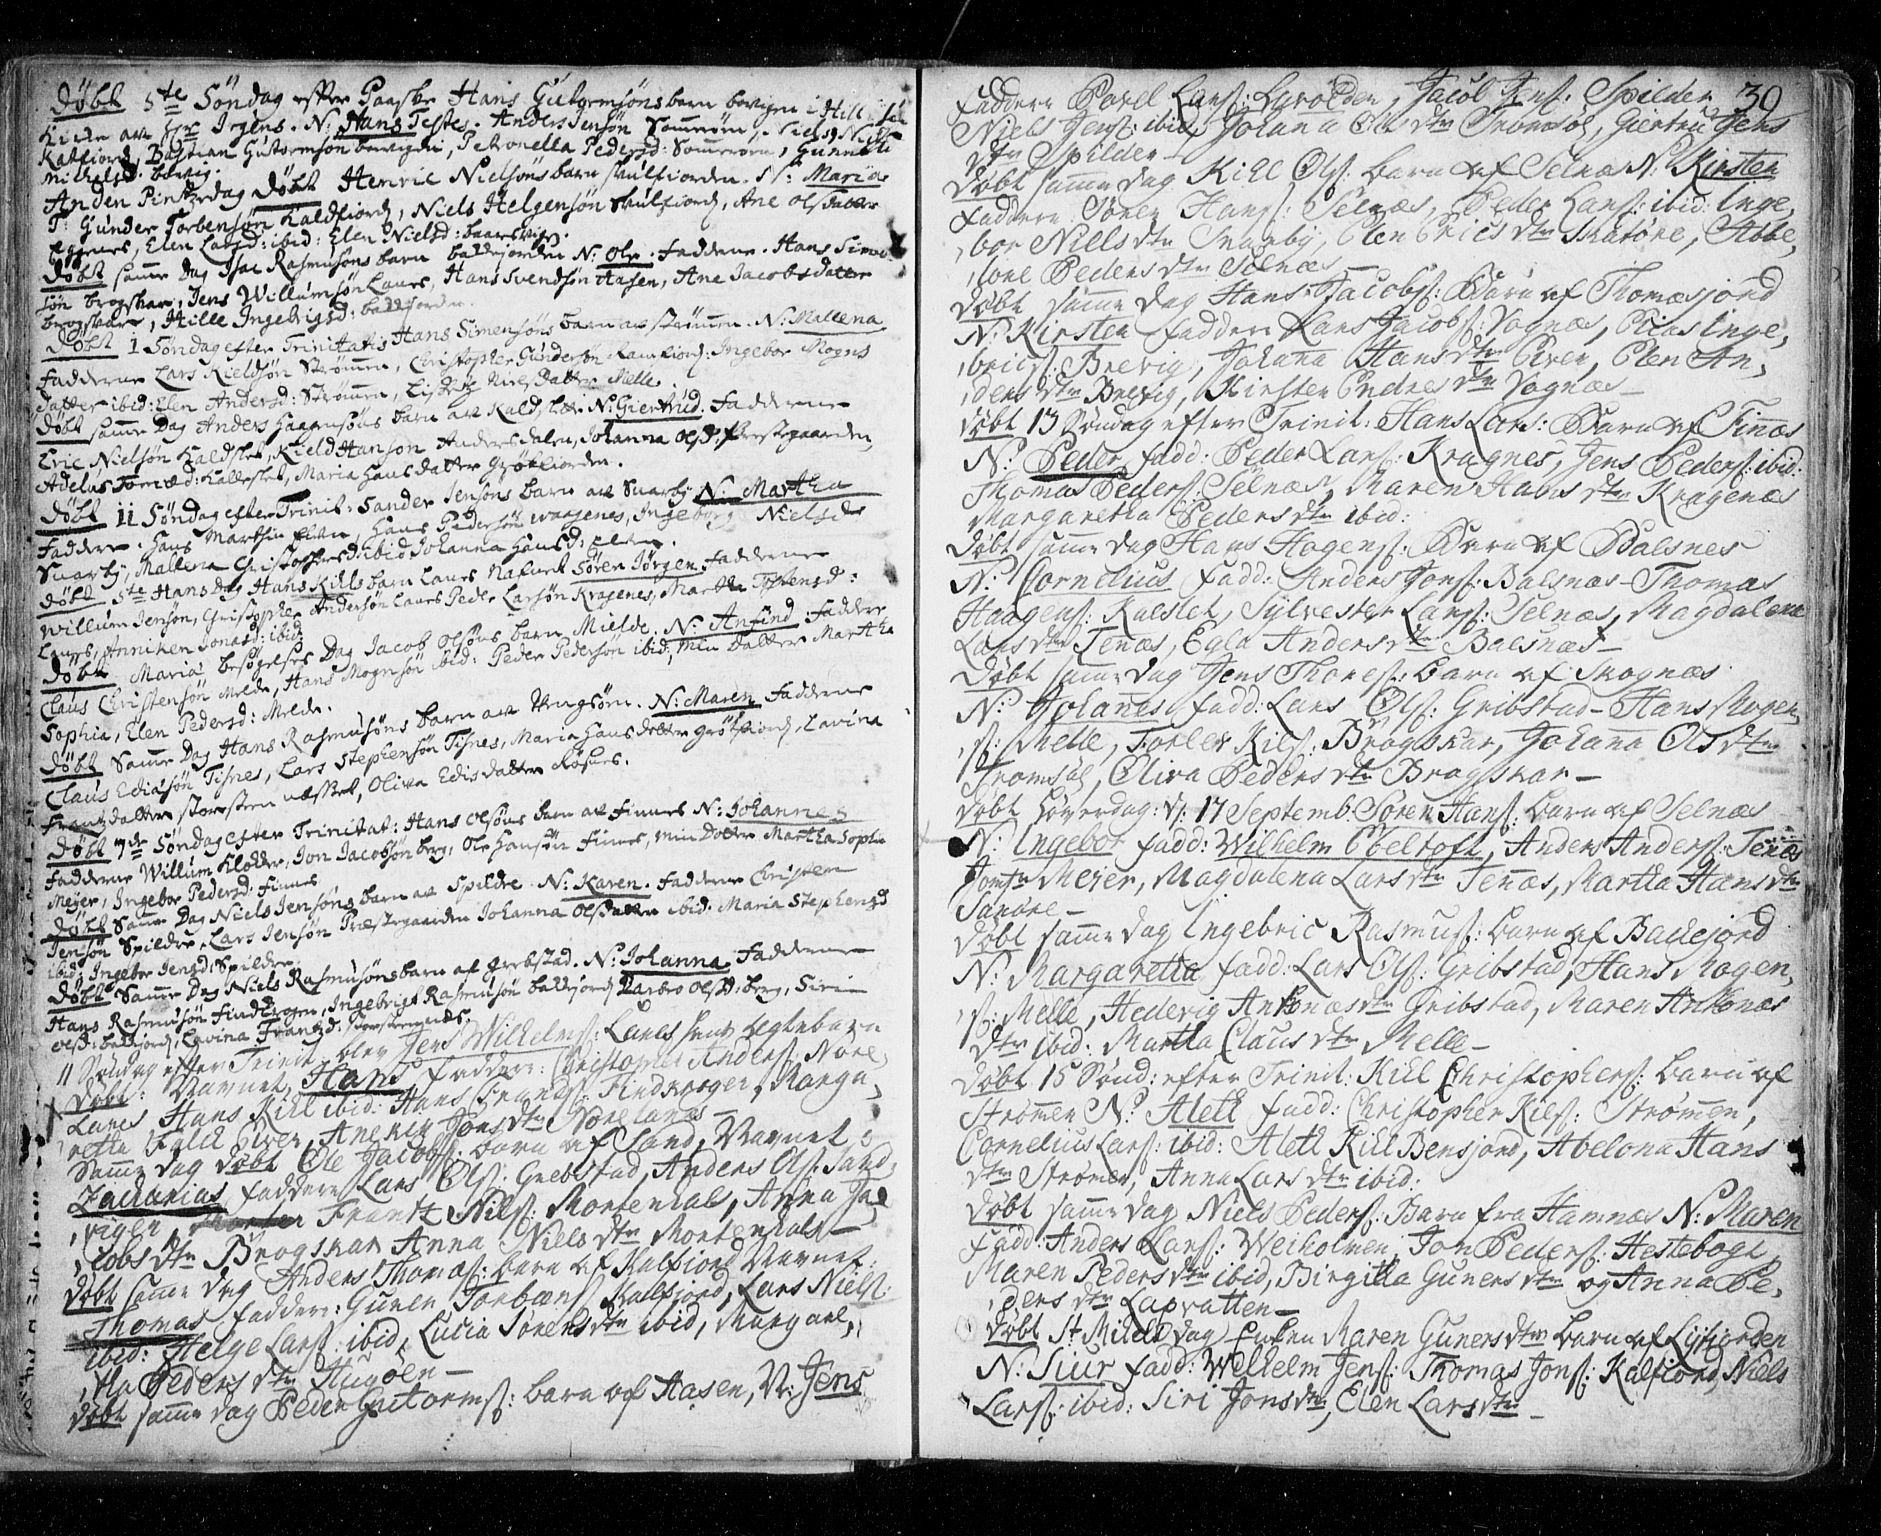 Døbt 5te Søndag efter Paaske Hans Gutormsøns barn bovigen i Hill
Kirke av Hr Irgens. N: Hans Testes. Anders Jensøn Sommerøen, Niels
Katfiord, Bastian Gutormsøn bovigen, Petronella Pedersd: Sommerøen,
Michelsd: bovig.
Anden Pintzedag Døbt Henric Nielsøns barn skulfiorden. N: Maria
T: Gunder Torbensøn Kaldfiord, Niels Helgensøn skulfiord, Ane Olsdatter
Eggenes, Elen Larsd: ibid: Elen Nielsd:
Døbt samme Dag Isac Rasmusøns barn balsfiorden N: Ole. Faddere. Hans Simon
søn brogskar, Jens Willumsøn Laues, Hans Svendsøn Aasen, Ane Jacobsdatter
brogskar, Hille Ingebrigsd: balsfiorden.
Døbt 1 Søndag efter Trinitatis Hans Simensøns barn av strømmen. N: Mallena
Fadderne Lars Kieldsøn Strømmen, Christopher Gundersøn Ramfiord: Ingebor Mogns
datter ibid: Elen Andersd: Strømmen, Nielsdatter Melle.
Døbt samme Dag Anders Haagensøns barn av Kaldslet N: Giertrud. Fadderne
Eric Nielsøn Kaldslet, Kield Hansøn Andersdalen, Johanna Olsd: Prestegaarden,
Adelus Tomæd: Kalleslet, Maria Hansdatter Grøtfiorden.
Døbt 11 Søndag efter Trinit: Sander Jensøns barn av Svarby N: Martha
Faddere. Hans Marthin Elen, Hans Pedersøn Waagenes, Ingeborg Nielsd
Svarby, Mallena Christophersd: ibid Johanna Hansd: Elen.
Døbt Ste Hans Dag Hans Kills barn Laues Nafnet Søren Jørgen. Fadderne
Willum Jensøn, Christopher Andersøn Laues Peder Larsøn Kragenes, Martha
Laues, Anniken Jonasd: ibid:
Døbt Mariæ besøgelses Dag Jacob Olsøns barn Mielde. N: Anfind. Faddere
Claus Christensøn Melde, Hans Mognsøn ibid: Peder Pedersøn ibid, Min Datter Martha
Sophia, Elen Pedersd: Melde.
Døbt Samme Dag Hans Rasmusøns barn av Vengsøen. N: Maren. Fadderne
Claus Ediasøn Tisnes, Lars Stephensøn Tisnes, Maria Hansdatter Grøtfiord, Lavina
Frantzdatter storsteennæsset, Oliva Edisdatter Røsnes.
Døbt 7de Søndag efter Trinitat: Hans Olsøns barn av Finnes N: Johannes
Fadderne Willum Klodde, Jon Jacobsøn berg, Ole Hansøn Finnes, Min Datter Martha Sophia
Meyer, Ingebor Pedersd: Finnes
Døbt Samme Dag Niels Jensøns barn av Spildre. N: Karen. Fadderne Christen
Jensøn Spildre, Lars Jensøn Præstegaarden Johanna Olsdatter ibid: Maria Stephensd
ibid: Ingebor Jensd: Spildre.
Døbt Samme Dag Niels Rasmusøns barn af Grebstad. N: Johanna. Fadderne
Hans Rasmusøn Findkrogen, Ingebrigt Rasmusøn balsfiord Barbro Olsd: berg, Siri
Olsd: balsfiord, Lavina Frantzd: storsteennæs.
11 Søndag efter Trinit. blev Jens Wilhelms: Lanes hans ægtebarn
Døbt: Navnet, Hans faddere: Christopher Anders: Nore
Lanes Hans Kill ibid: Hans Frands: Findkroger, Marga,
retha Falck Elven, Aneken Jons dtr Norelanæs
Samme dag døbt Ole Jacobs: barn af Sand, Navnet:
Zacharias, faddere Lars Ols: Grebstad, Anders Ols: Sand,
vigen, Frantz Nils: Mortenhals, Anna Ja
cobs dtr Brogskar Anna Niels dtr Mortenhals
Døbt samme dag Anders Thomas: barn af Kalfiord Navnet:
Thomas faddere: Guner Torbens: Kalfjord, Lars Niels:
ibid: Helge Lars: ibid, Lucia Sørens dtr ibid, Margare,
tha Peders dtr Hugøen
Døbt samme dag Peder Gutorms: barn af Aasen, N: Jens
30
Faddere Povel Lars: Lyvolden, Jacob Jens: Spilder
Niels Jens: ibid, Johana Ols dtr Tromsøe, Giertrud Jens
dtr Spilder
Døbt samme dag Kill Ols: Barn af Selnæs N: Kirsten
Faddere Søren Hans: Selnæs, Peder Hans: ibid: Inge,
bor Niels dtr Svarby, Elen Erics dtr Skatøre, Abbe,
lone Peders dtr Selnæs
Døbt samme dag Hans Jacobs: Barn af Thomæsjord
N: Kirsten faddere Lars Jacobs: Vognæs, Elias Inge,
brics: Brevig, Johana Hans dtr Elven, Elen An,
ders dtr Brevig, Kirsten Endres dtr Vognæs
Døbt 13 Søndag efter Trinit: Hans Lars: Barn af Finæs
N: Peder, fadd: Peder Lars: Kragnes, Jens Peders: ibid:
Thomas Peders: Selnæs, Maren Hans dtr Kragenæs
Margaretha Peders dtr ibid:
Døbt samme dag Hans Hagens: Barn af Balsnes
N: Cornelius fadd: Anders Jons: Balsnæs Thomas
Haagens: Kalslet, Sylvester Lars: Selnæs, Magdalena
Lars dtr Tenæs, Egla Anders dtr Balsnæs
Døbt samme dag Jens Thores: Barn af Skognæs
N: Johanes fadd: Lars Ols: Gribstad Hans Mogen,
s: Melle, Torler Kils: Brogskar, Johana Ols dtr
Tromsøe, Oliva Peders dtr Brogskar
Døbt Løverdag: d: 17 Septemb: Søren Hans: barn af Selnæs
N: Ingebor fadd: Wilhelm Ebeltoft, Anders Anders: Tenæs
Jomfr Meyer, Magdalena Lars dtr Tenæs, Martha Hans dtr
Sanøre
Døbt samme dag Ingebric Rasmus: barn af Backejord
N: Margaretha fadd: Lars Ols: Gribstad, Hans Mogen,
s: Melle, Hedevig Antonæs dtr Gribstad, Maren Antonæs
dtr ibid: Martha Claus dtr Melle
Døbt 15 Sønd: efter Trinit: Kill Christophers: barn af
Strømen N: Aleth fadd: Christopher Kils: Strømmen,
Cornelius Lars: ibid: Aleth Kill Bensjord, Abelona Hans
dtr Strømen, Anna Lars dtr ibid:
Døbt samme dag Niels Peders: Barn fra Hamnæs N: Maren
Fadd: Anders Lars: Weiholmen, Jon Peders: Hestebogt
Maren Peders dtr ibid, Birgitha Guners dtr og Anna Pe,
ders dtr Lapvatten
Døbt St Mikels dag Enken Maren Guners dtr barn af Lysfjorden
N: Siur fadd: Wilhelm Jens: Thomas Jons: Kalfiord, Niels
Lars: ibid: Siri Jons dtr, Elen Lars dtr